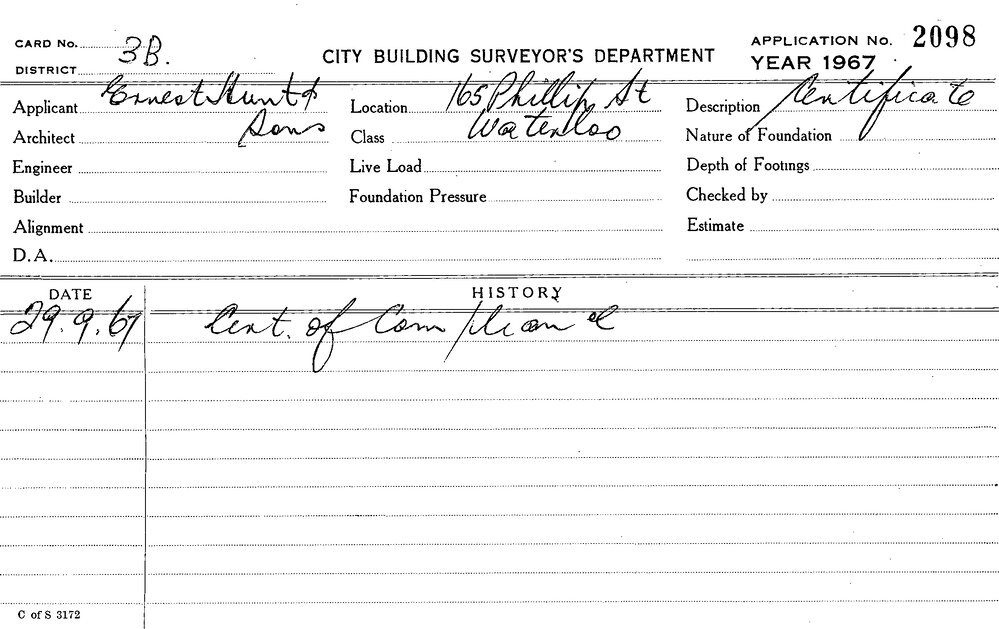 CARD No. 3B. CITY BUILDING SURVEYOR'S DEPARTMENT APPLICATION No. 2098
DISTRICT YEAR 1967
Applicant Ernest Hunt & Location 165 Phillip St Description Certificate
Architect Sons Class Waterloo Nature of Foundation
Engineer Live Load Depth of Footings
Builder Foundation Pressure Checked by
Alignment Estimate
D.A.
DATE HISTORY
29.9.67 Cert. of Compliance
C of S 3172